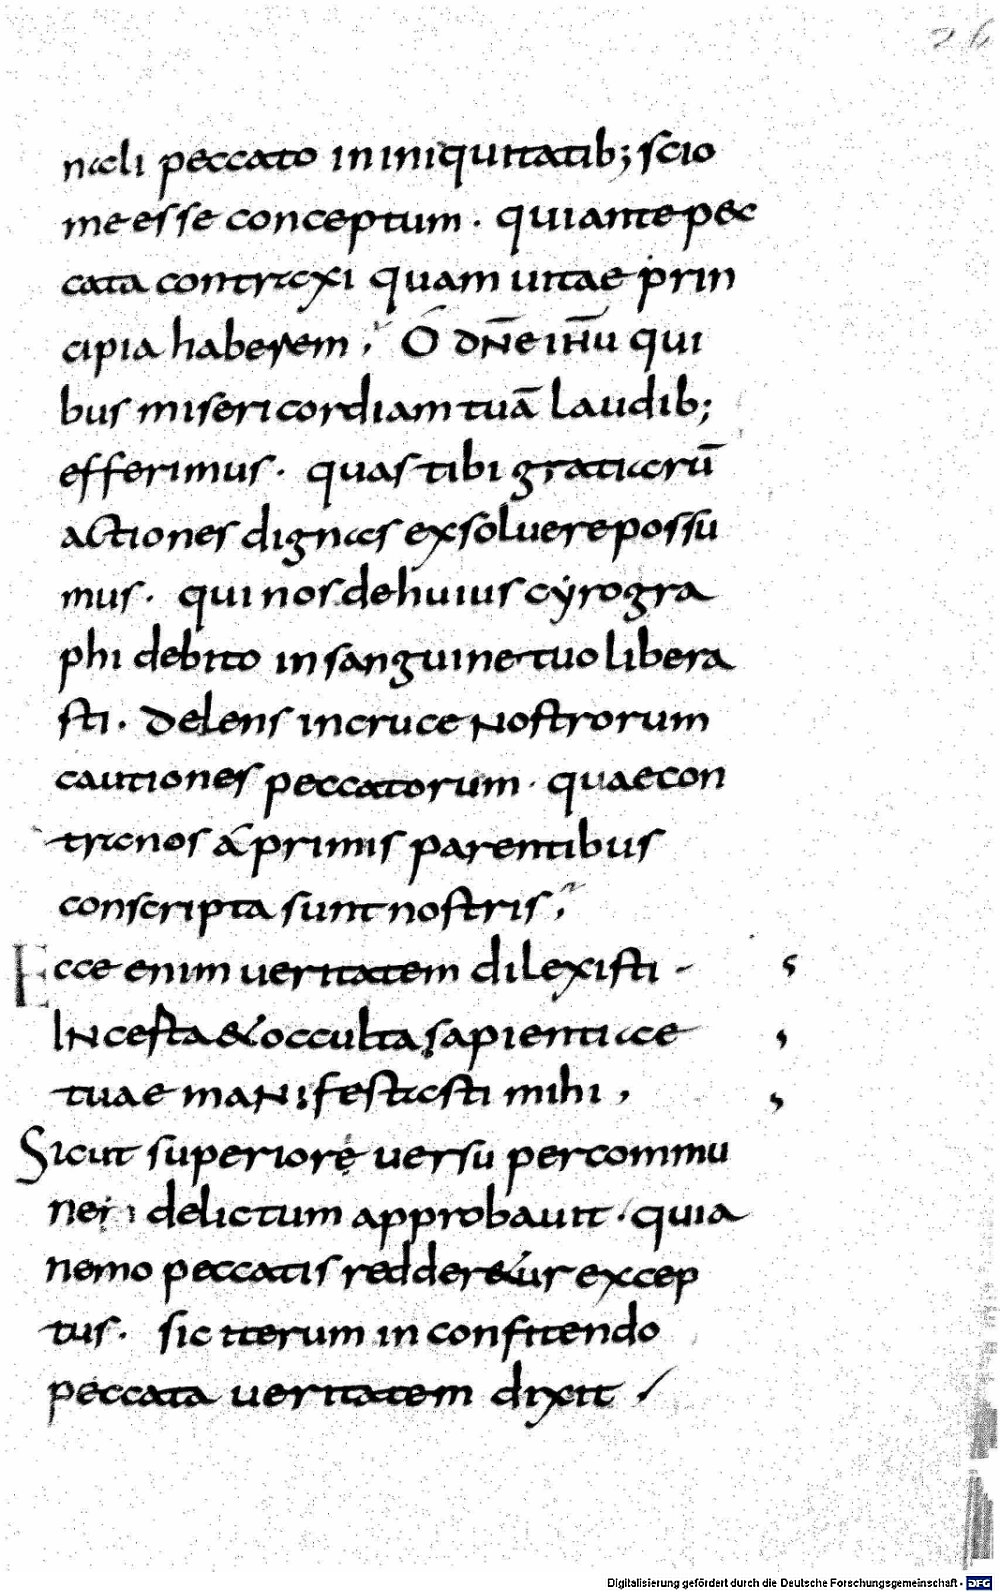 26
nali peccato in iniquitatib; scio
me esse conceptum · quia ante pec
cata contraxi quam uitae prin
cipia haberem ; O dñe ihu qui
bus misericordiam tuā laudib;
efferimus · quas tibi gratiarū
actiones dignas exsoluere possu
mus · qui nos de huius cyrogra
phi debito in sanguine tuo libera
sti · delens in cruce nostrorum
cautiones peccatorum · quae con
tra nos a primis parentibus
conscripta sunt nostris ;
Ecce enim ueritatem dilexisti -
Incerta & occulta sapientiae
tuae manifestasti mihi ,
Sicut superiore uersu per commu
ne delictum approbauit · quia
nemo peccatis redder&ur excep
tus · sic iterum in confitendo
peccata ueritatem dixit /
Digitalisierung gefördert durch die Deutsche Forschungsgemeinschaft - DFG